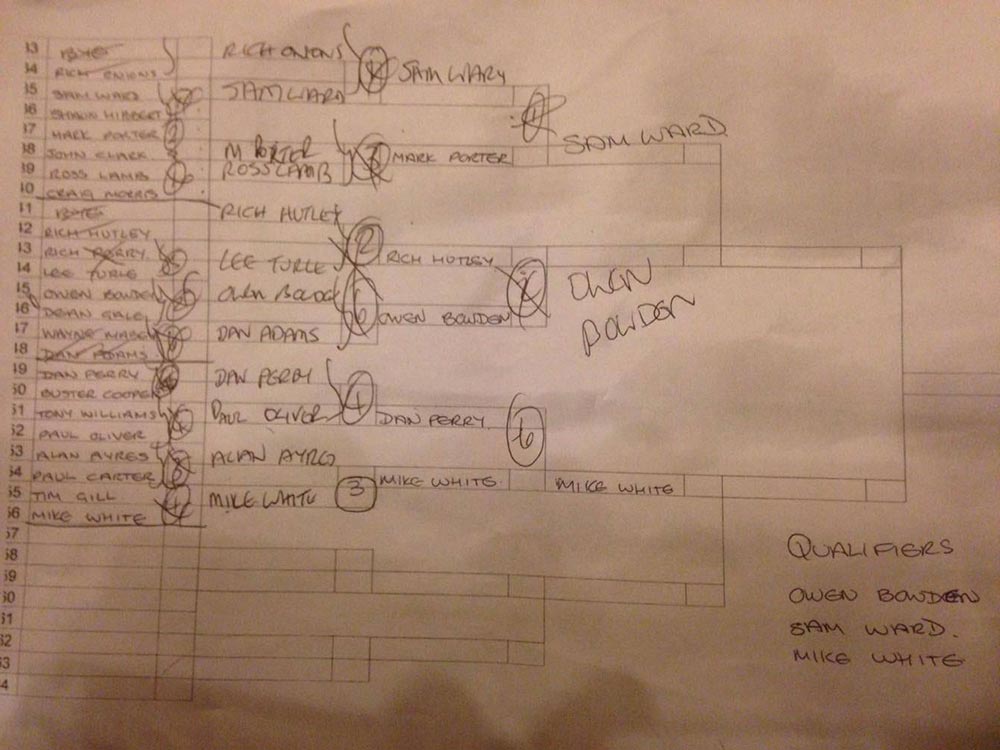 33 BYE
34 RICH ONIONS
35 SAM WARD
36 SHAUN HIBBERT
37 MARK PORTER
38 JOHN CLARK
39 ROSS LAMB
40 CRAIG MORRIS
41 BYE
42 RICH HUTLEY
43 RICH PERRY
44 LEE TURLE
45 OWEN BOWDEN
46 DEAN GALE
47 WAYNE
48 DAN ADAMS
49 DAN PERRY
50 BUSTER COOPER
51 TONY WILLIAMS
52 PAUL OLIVER
53 ALAN AYRES
54 PAUL CARTER
55 TIM GILL
56 MIKE WHITE
57
58
59
60
61
62
63
64
RICH ONIONS
SAM WARD
M PORTER
ROSS LAMB
RICH HUTLEY
LEE TURLE
OWEN
DAN ADAMS
DAN PERRY
PAUL OLIVER
ALAN AYRES
MIKE WHITE
2
6
1
3
SAM WARY
MARK PORTER
RICH HUTLEY
OWEN BOWDEN
DAN PERRY
MIKE WHITE
6
SAM WARD
OWEN
BOWDEN
MIKE WHITE
QUALIFIERS
OWEN BOWDEN
SAM WARD.
MIKE WHITE